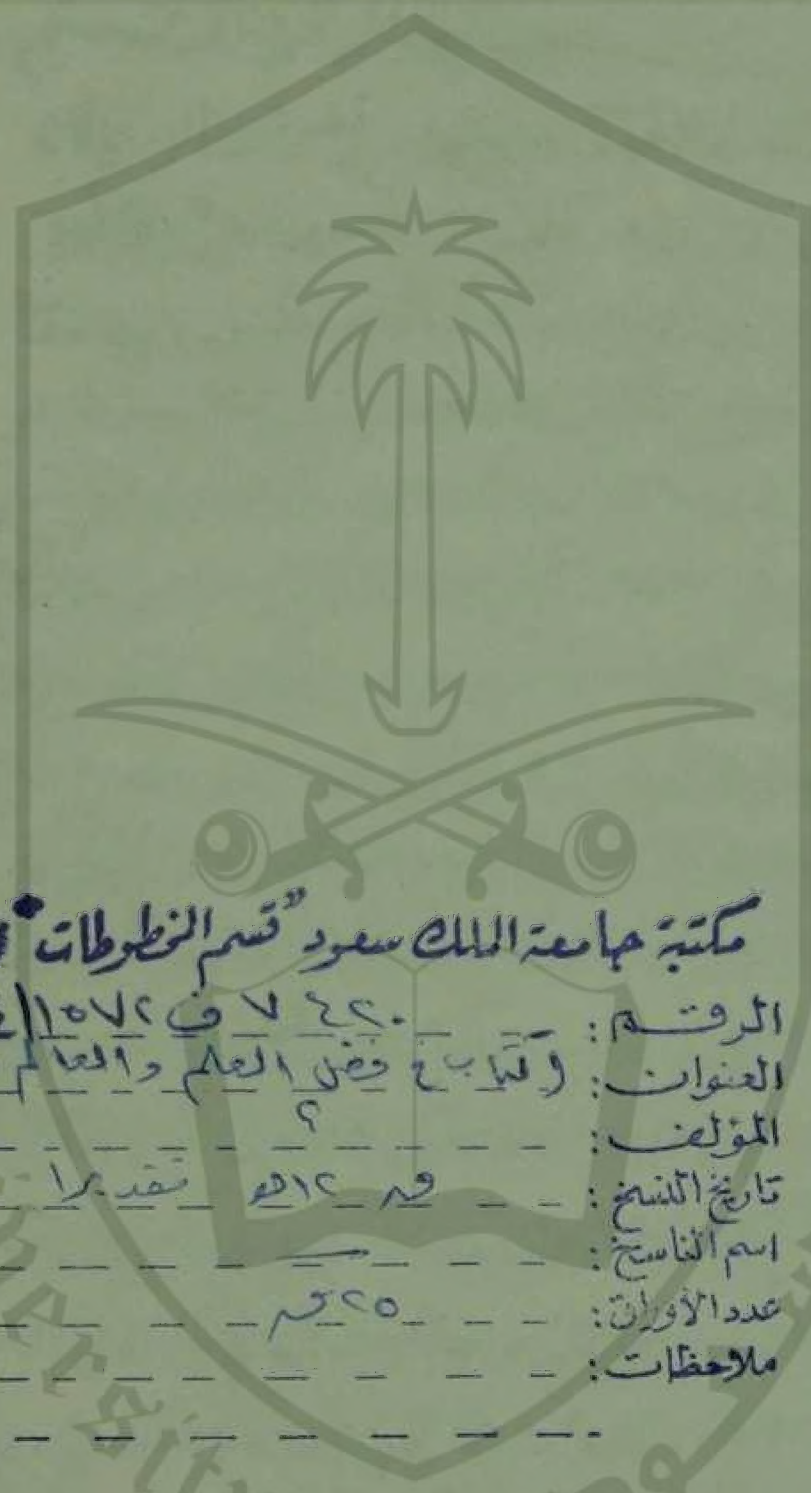 مكتبة جامعة الملك سعود "قسم المخطوطات"
الرقم: ٧٤٢٠ ف ١٥٧٢/
العنوان: (كتاب في فضل العلم والعالم
المؤلف: ؟
تاريخ النسخ: ق ١٢هـ تقديرا
اسم الناسخ:
عدد الأوراق: ٢٥ق
ملاحظات: